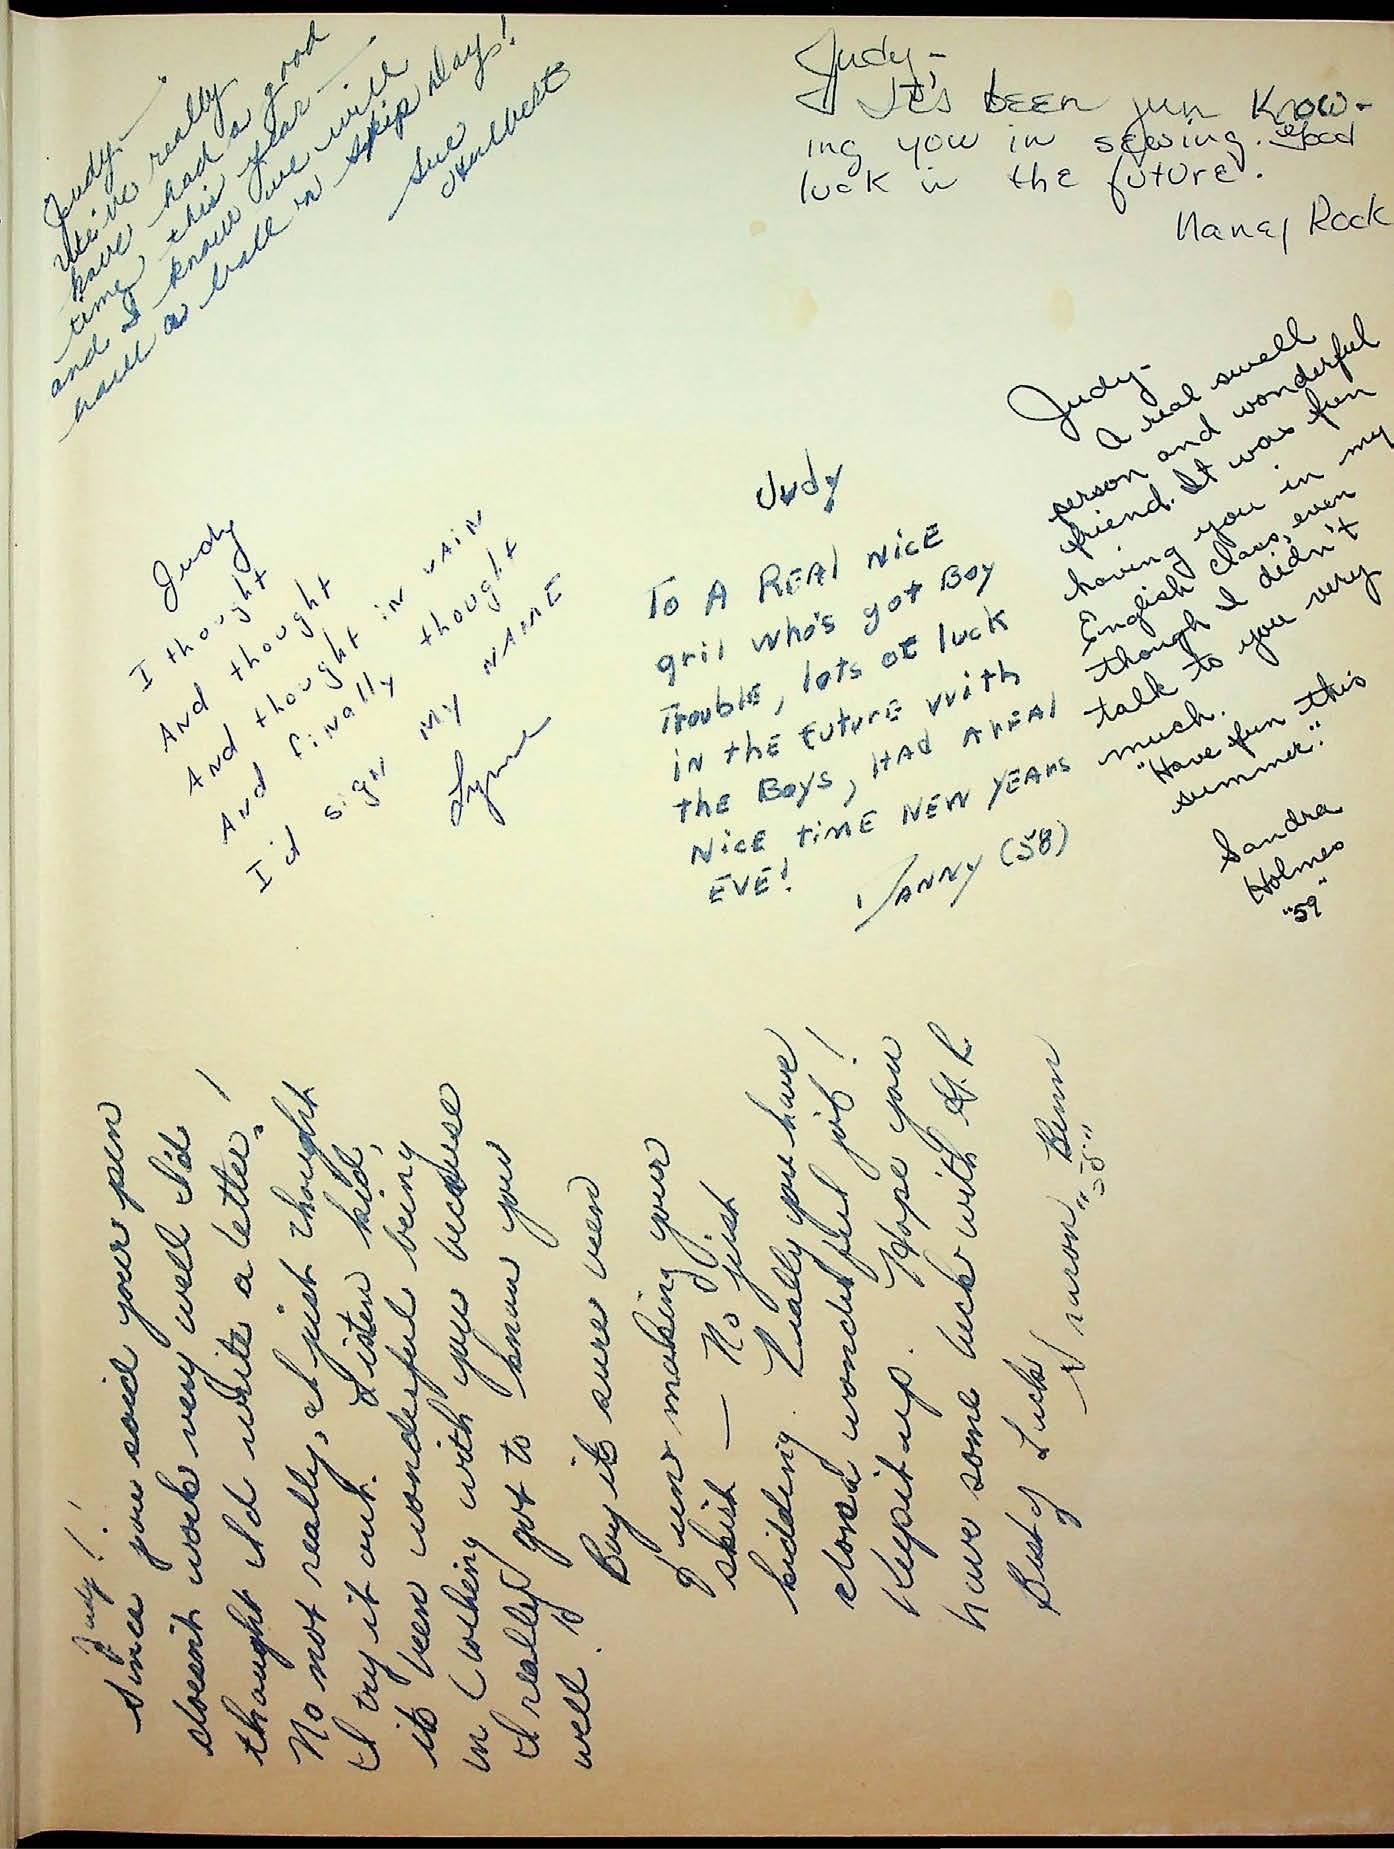 Judy-
We've really
have had a good
time this year -
and I know we will
have a ball on skip day!
Sue
Judy-
It's been fun know-
ing you in sewing. Good
luck in the future.
Nancy Rock
Judy-
A real swell
person and wonderful
friend. It was fun
having you in my
English class, even
though I didn't
talk to you very
much.
"Have fun this
summer."
Sandra
Holmes
"59"
Judy
I thought
And thought
And thought in vain
And finally thought
I'd sign my NAME
Lynne
Judy
To A REAl NicE
gril who's got Boy
TroublE, lots oF luck
iN thE FuturE with
thE Boys, HAd A rEAl
NicE timE NEW YEArs
EVE!
DANNY (58)
Judy!!
Since you said your pen
doesn't work very well I'd
thought I'd write a letter!
No not really, I just thought
I try it out. Listen kid,
it's been wonderful being
in clothing with you because
I really got to know you
well.
Boy it's sure been
fun making your
skirt — No just
kidding. Really you have
done a wonderful job!
Keep it up. Hope you
have some luck with G.L.
Best of Luck
Sharon Benn